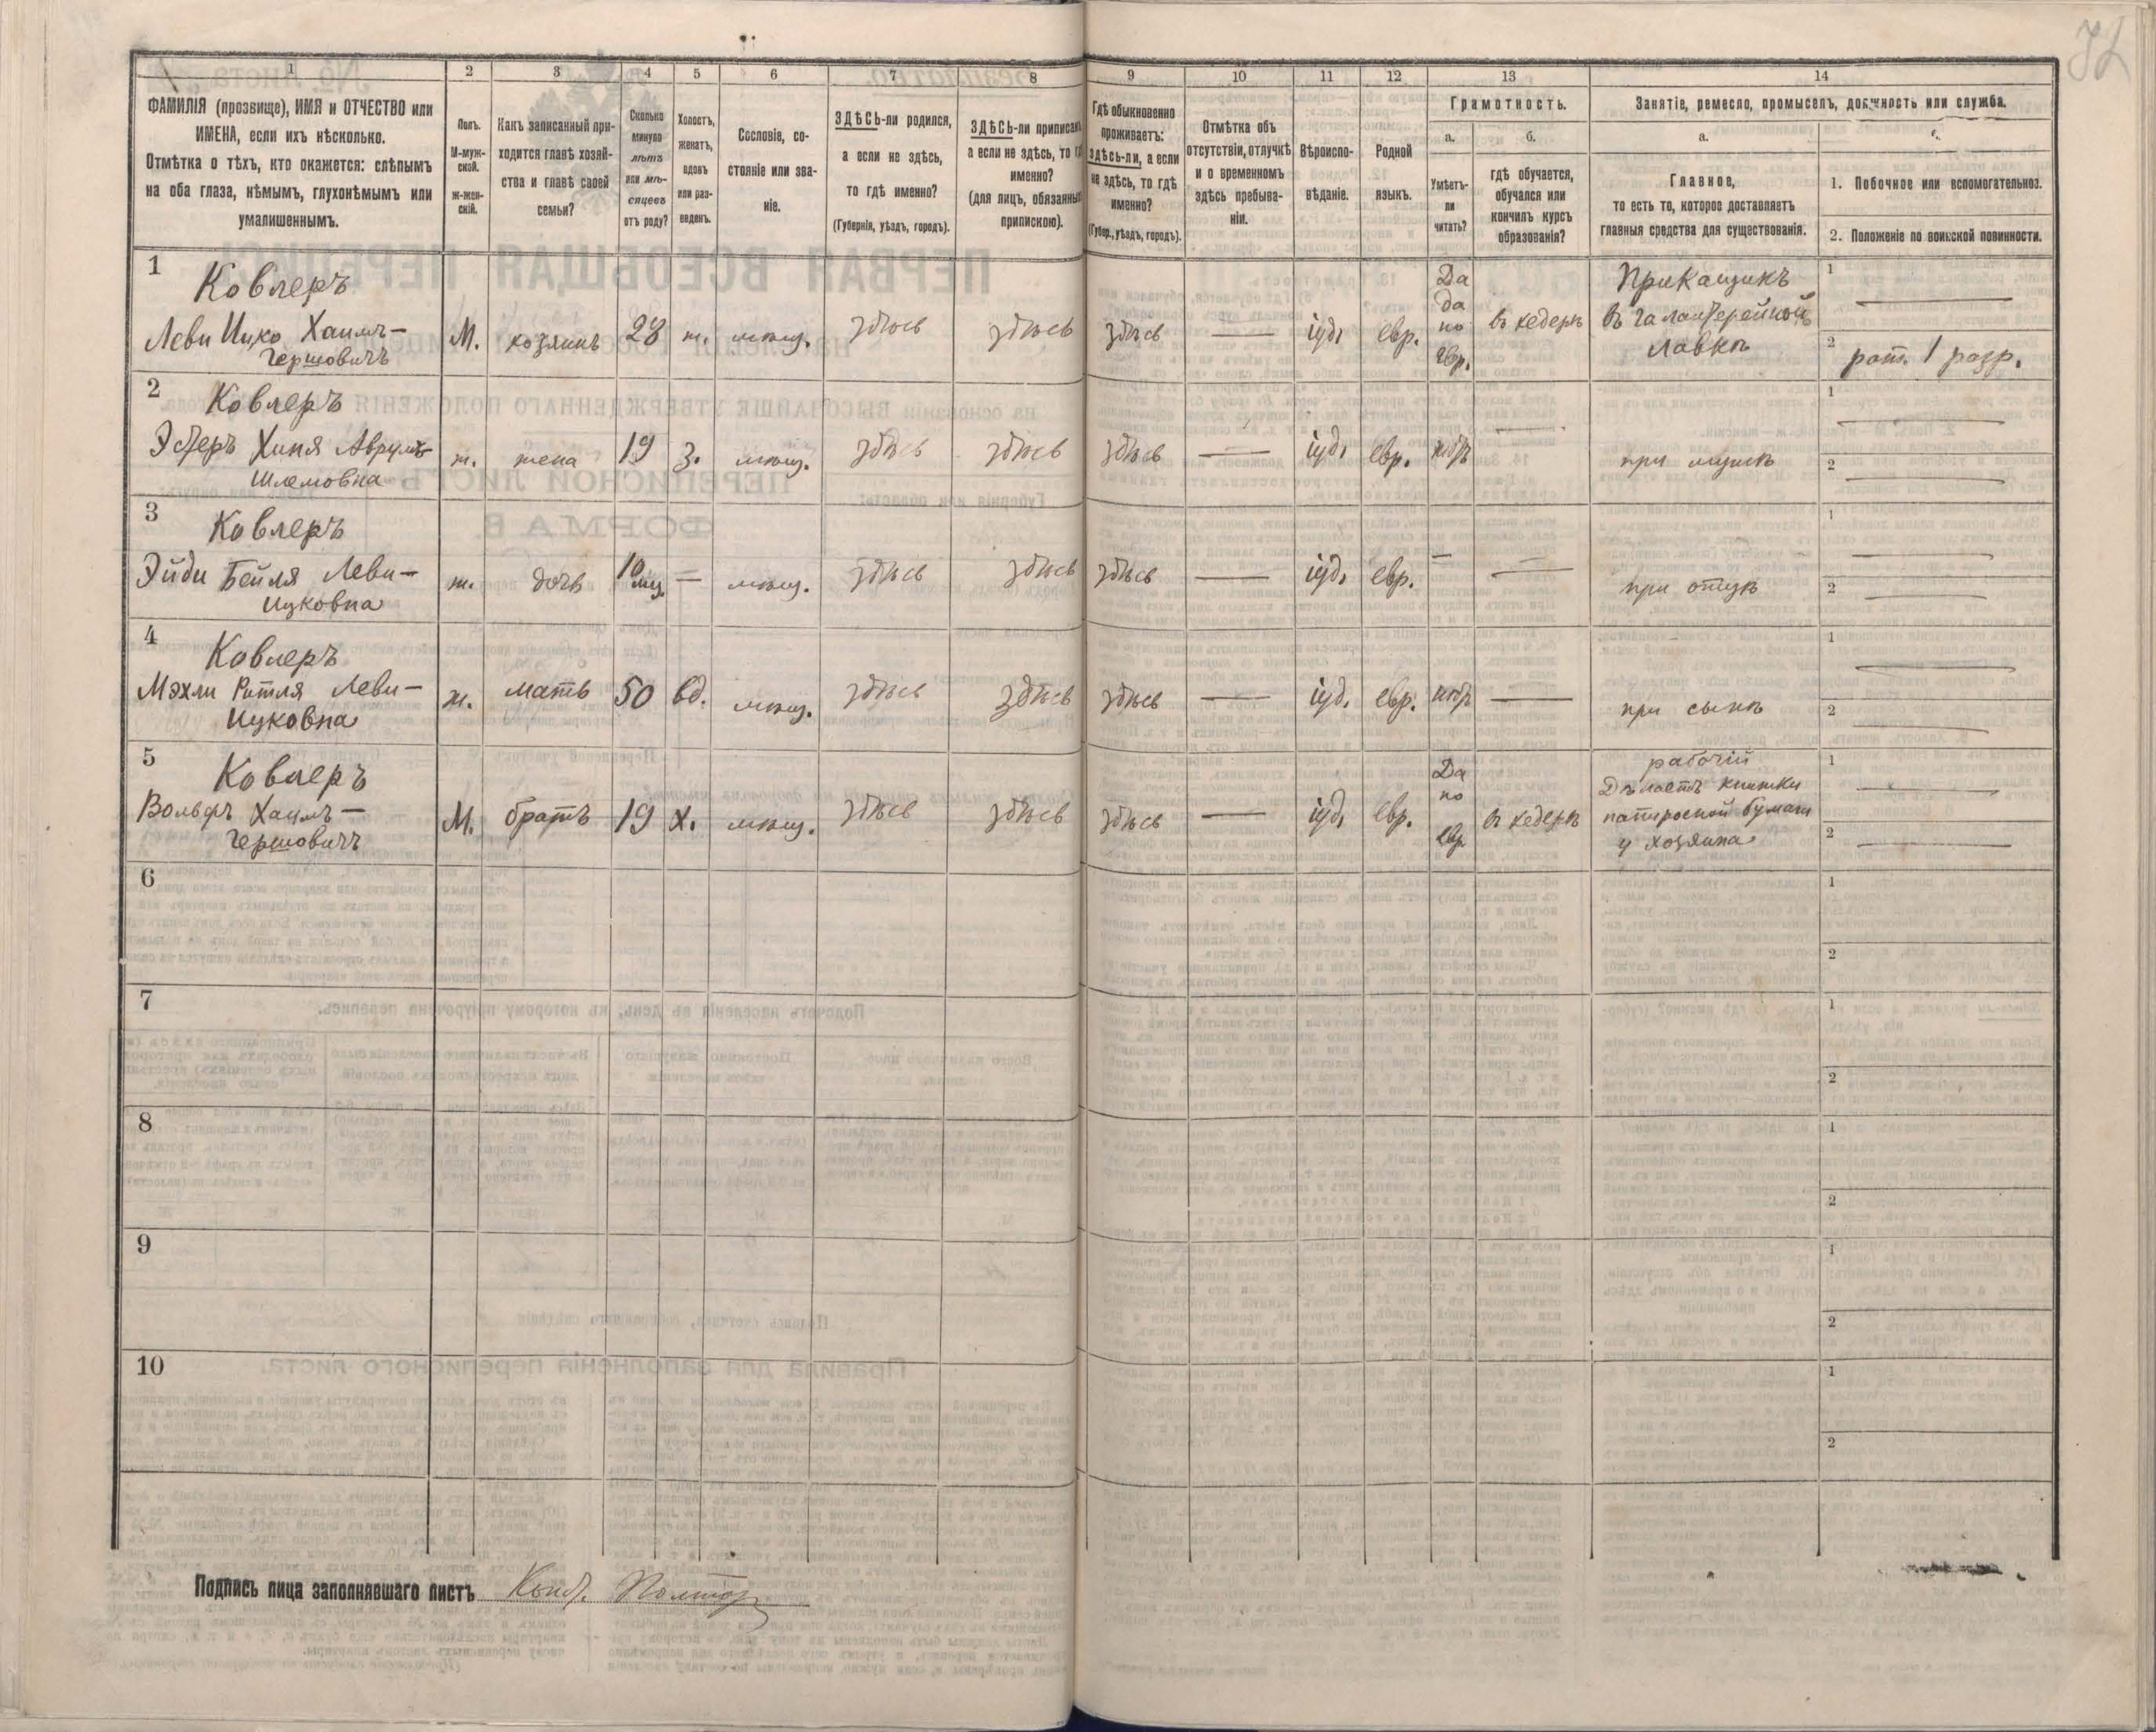 72
1 2 3 4 5 6 7 8 9 10 11 12 13 14
ФАМИЛІЯ (прозвище), ИМЯ и ОТЧЕСТВО или
ИМЕНА, если ихъ нѣсколько.
Отмѣтка о тѣхъ, кто окажется: слѣпымъ
на оба глаза, нѣмымъ, глухонѣмымъ или
умалишеннымъ.
Полъ.
М-муж-
ской.
ж-жен-
скій.
Какъ записанный при-
ходится главѣ хозяй-
ства и главѣ своей
семьи?
Сколько
минуло
лѣтъ
или мѣ-
сяцевъ
отъ роду?
Холостъ,
женатъ,
вдовъ
или раз-
веденъ.
Сословіе, со-
стояніе или зва-
ніе.
ЗДѢСЬ-ли родился,
а если не здѣсь,
то гдѣ именно?
(Губернія, уѣздъ, городъ).
ЗДѢСЬ-ли приписанъ
а если не здѣсь, то гдѣ
именно?
(для лицъ, обязанныхъ
припискою).
Гдѣ обыкновенно
проживаетъ:
здѣсь-ли, а если
не здѣсь, то гдѣ
именно?
(Губер., уѣздъ, городъ).
Отмѣтка объ
отсутствіи, отлучкѣ
и о временномъ
здѣсь пребыва-
ніи.
Вѣроиспо-
вѣданіе.
Родной
языкъ.
Грамотность.
а.
Умѣетъ-
ли
читать?
б.
гдѣ обучается,
обучался или
кончилъ курсъ
образованія?
Занятіе, ремесло, промыселъ, должность или служба.
а.
Главное,
то есть то, которое доставляетъ
главныя средства для существованія.
1. Побочное или вспомогательное.
2. Положеніе по воинской повинности.
1
Ковлеръ
Леви Ицко Хаимъ-
Гершовичъ
М. хозяинъ 28 ж. мѣщ. здѣсь здѣсь здѣсь — іуд. евр.
Да
да
по
евр.
въ хедерѣ
Прикащикъ
въ галантерейной
лавкѣ
1 —
2 рат. 1 разр.
2
Ковлеръ
Эстеръ Хиня Аврумъ-
Шлемовна
ж. жена 19 з. мѣщ. здѣсь здѣсь здѣсь — іуд. евр. нѣтъ — при мужѣ
1 —
2 —
3
Ковлеръ
Эйди Бейля Леви-
Ицковна
ж. дочь 10 мц. — мѣщ. здѣсь здѣсь здѣсь — іуд. евр. — — при отцѣ
1 —
2 —
4
Ковлеръ
Мэхли Ритля Леви-
Ицковна
ж. мать 50 вд. мѣщ. здѣсь здѣсь здѣсь — іуд. евр. нѣтъ — при сынѣ
1 —
2 —
5
Ковлеръ
Вольфъ Хаимъ-
Гершовичъ
М. братъ 19 х. мѣщ. здѣсь здѣсь здѣсь — іуд. евр.
Да
по
евр.
въ хедерѣ
рабочій
Дѣлаетъ книжки
папиросной бумаги
у хозяина
1 —
2 —
6
1
2
7
1
2
8
1
2
9
1
2
10
1
2
Подпись лица заполнявшаго листъ